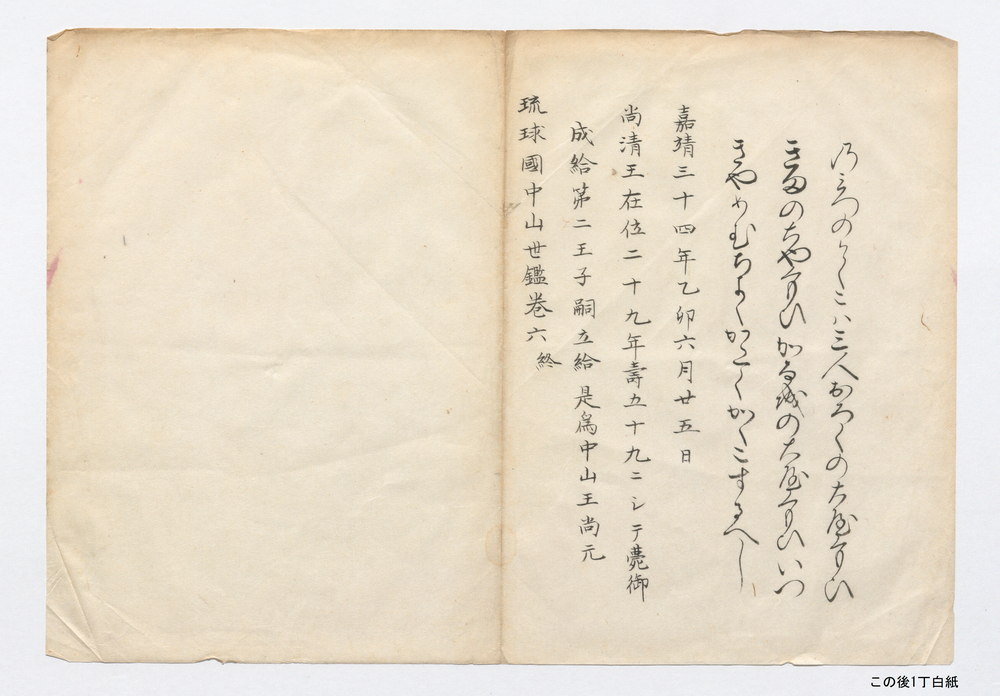 のみつのかくこハ三人おろくの大屋もい
きまの大やもい かな城の大屋もい いつ
きやめむちよくかたくかくこするへし
嘉靖三十四年乙卯六月廿五日
尚清王在位二十九年壽五十九ニシテ薨御
成給第二王子嗣立給是爲中山王尚元
琉球國中山世鑑卷六終
この後1丁白紙